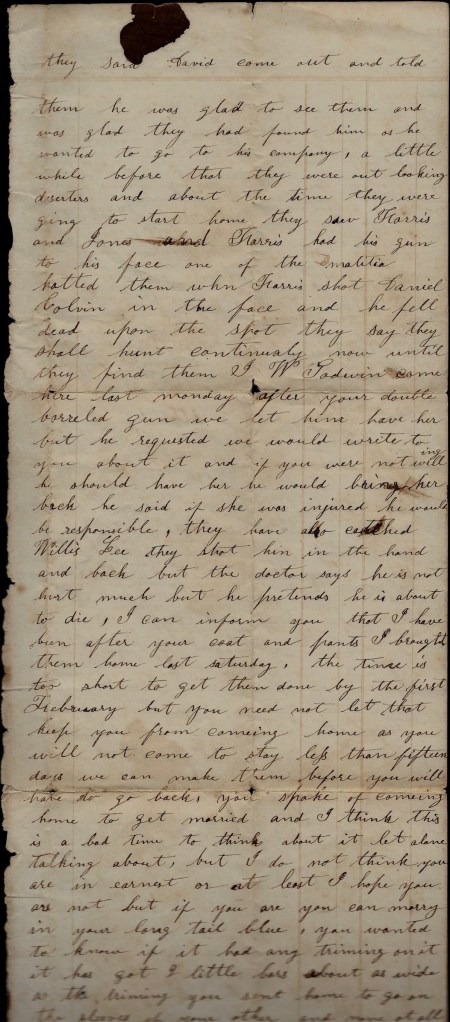 they said David come out and told
them he was glad to see them and
was glad they had found him as he
wanted to go to his company, a little
while before that they were out looking
deserters and about the time they were
going to start home they saw Harris
and Jones and Harris had his gun
to his face one of the malitia
hatted them whn Harris shot Daniel
Colvin in the face and he fell
dead upon the spot they say they
shall hunt continualy now until
they find them J W Godwin come
here last monday after your double
borreled gun we let him have her
but he requested we would write to
you about it and if you were not willing
he should have her he would bring her
back he said if she was injured he would
be responsible, they have also catched
Willis Lee they shot him in the hand
and back but the doctor says he is not
hurt much but he pretends he is about
to die, I can inform you that I have
bun after your coat and pants I brought
them home last saturday, the time is
too short to get them done by the first
Frebruary but you need not let that
keep you from comeing home as you
will not come to stay less than fifteen
days we can make them before you will
have do go back, you spoke of comeing
home to get married and I think this
is a bad time to think about it let alone
talking about, but I do not think you
are in earnest or at least I hope you
are not but if you are you can marry
in your long tail blue, you wanted
to know if it had any triming on it
it has got 2 little bars about as wide
as the triming you sent home to go on
the sleeves of your other and none at all